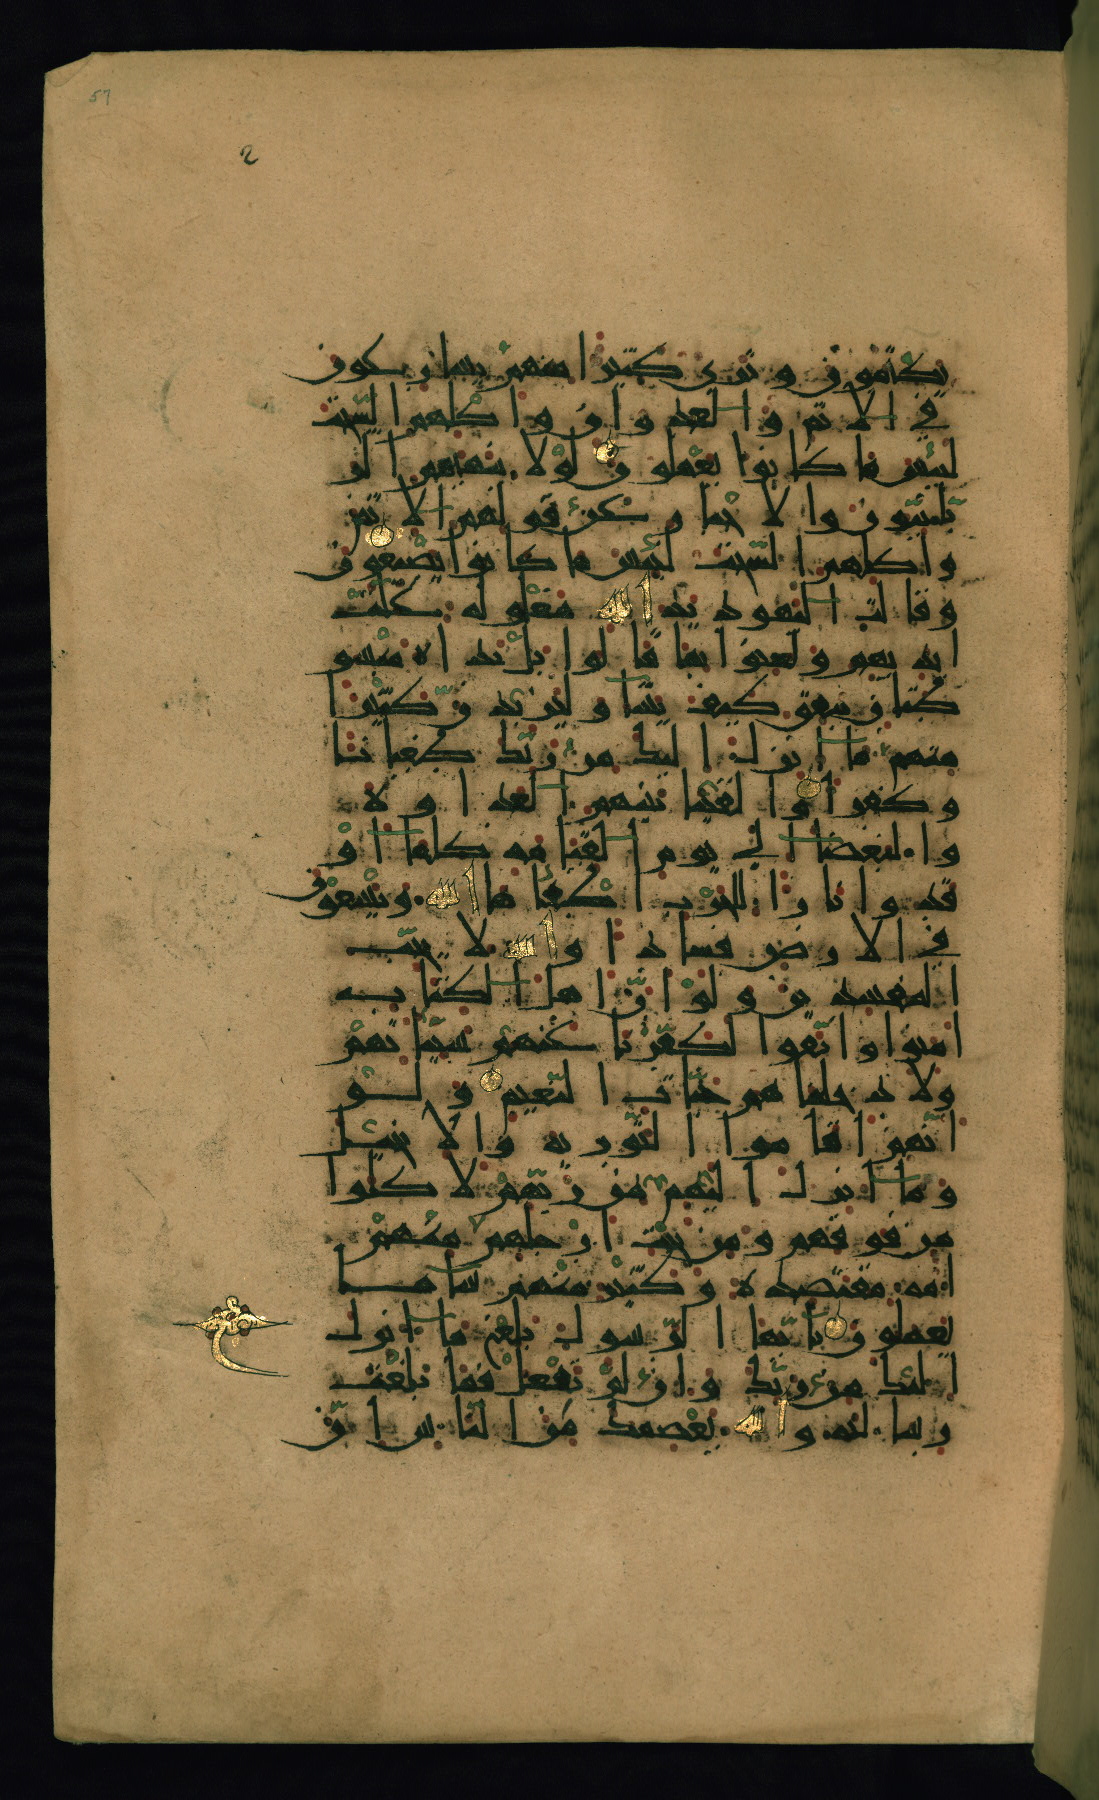 57
2
يكتمون وترى كثيرا منهم يسارعون
في الاثم والعدوان واكلهم السحت
لبئس ما كانوا يعملون لولا ينهيهم الر
بانيون والاحبار عن قولهم الاثم
واكلهم السحت لبئس ما كانوا يصنعون
وقالت اليهود يد الله مغلولة غلت
ايديهم ولعنوا بما قالوا بل يداه مبسو
طتان ينفق كيف يشا وليزيدن كثيرا
منهم ما انزل اليك من ربك طغيانا
وكفرا والقينا بينهم العداوة
والبغضا الى يوم القيامة كلما او
قدوا نارا للحرب اطفاها الله ويسعون
في الارض فسادا والله لا يحب
المفسدين ولو ان اهل الكتاب
امنوا واتقوا لكفرنا عنهم سياتهم
ولادخلناهم جنات النعيم ولو
انهم اقاموا التورية والانجيل
وما انزل اليهم من ربهم لاكلوا
من فوقهم ومن تحت ارجلهم منهم
امة مقتصدة وكثير منهم سا ما
يعملون يايها الرسول بلغ ما انزل
اليك من ربك وان لم تفعل فما بلغت
رسالته والله يعصمك من الناس ان